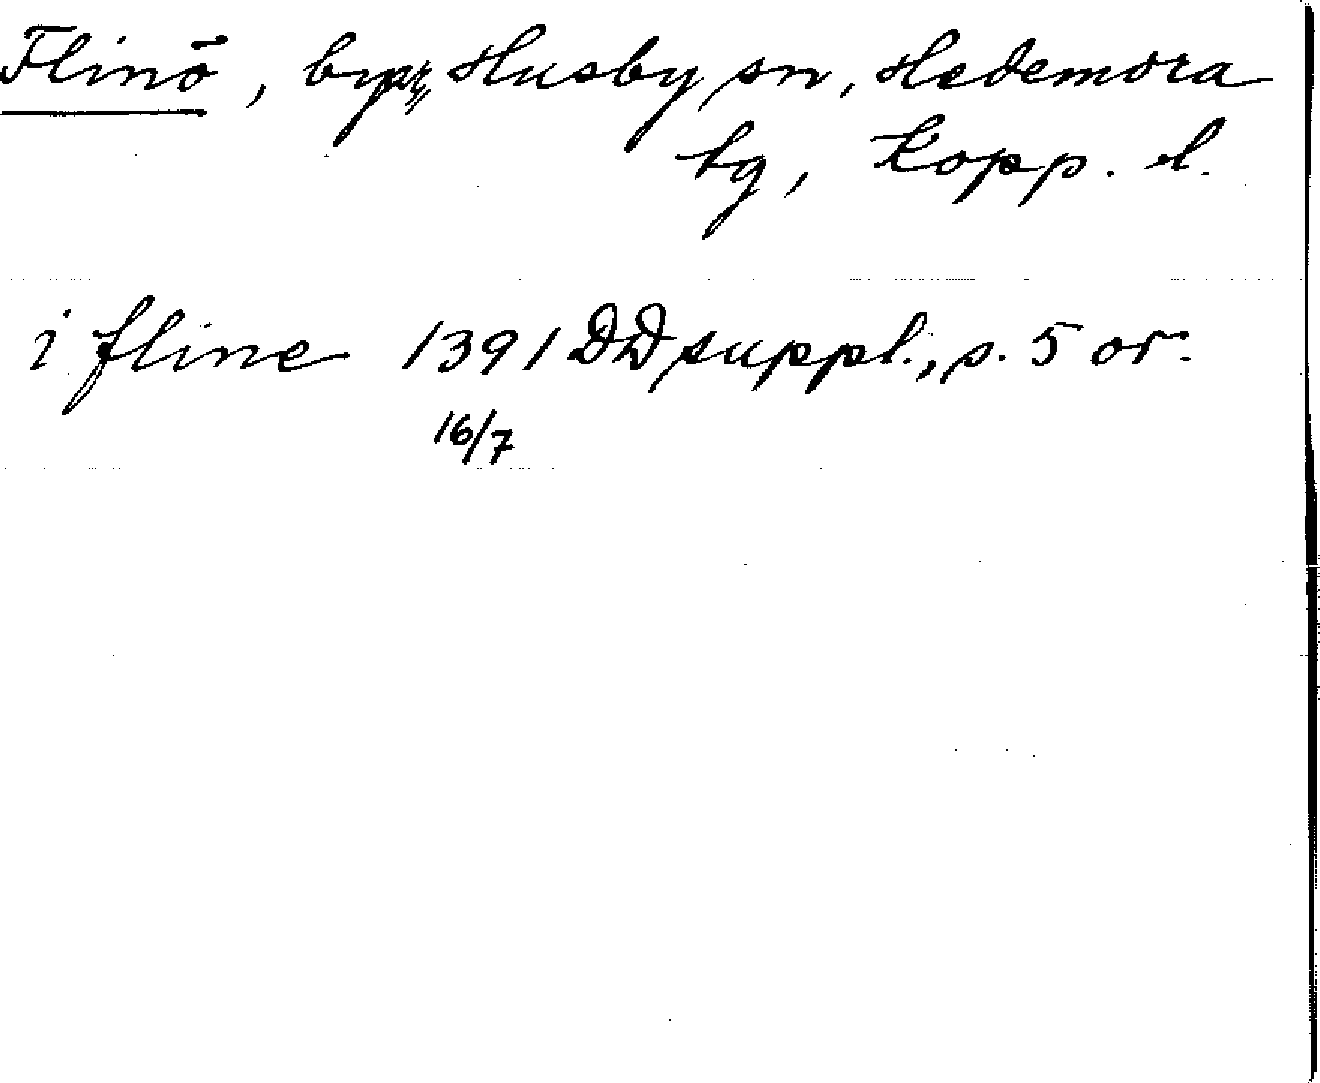 Flinö, by, Husby sn, Hedemora
tg, Kopp. l.
i fline 1391 DD suppl., s. 5 or.
16/7